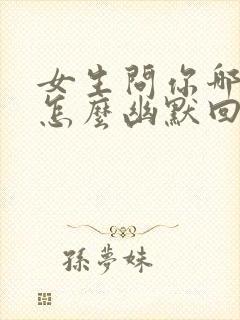 女生問你哪
怎麼幽默回
孫夢妹